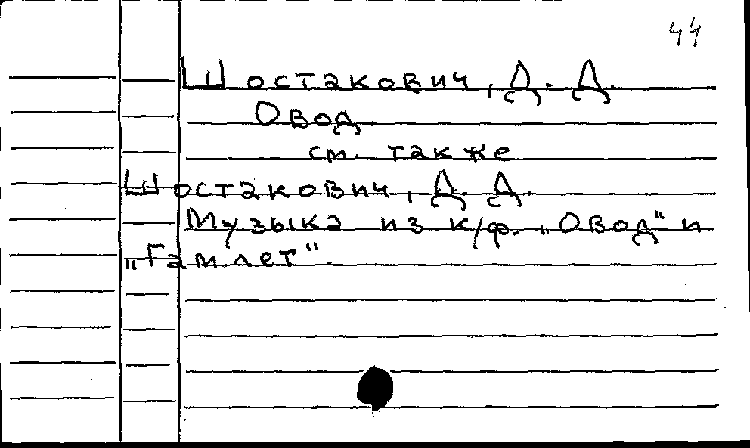 44
Шостакович, Д. Д.
Овод
см. также
Шостакович, Д. Д.
Музыка из к/ф. „Овод" и
„Гамлет".